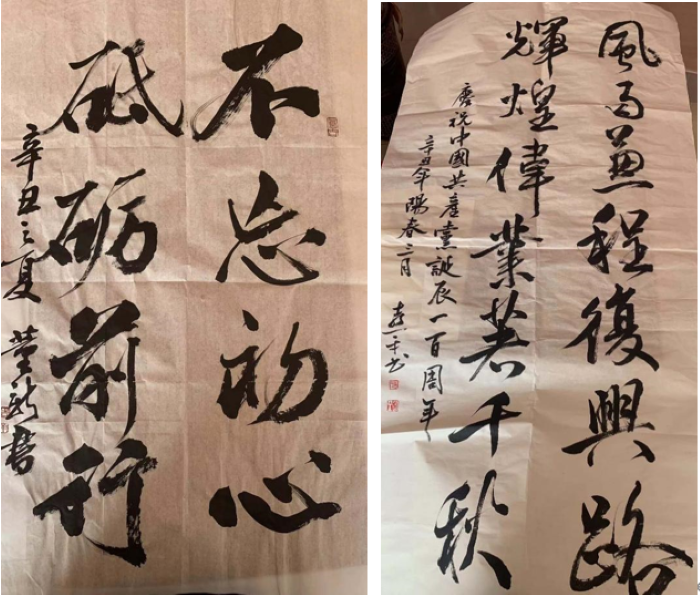 不忘初心
砥砺前行
辛丑之夏 董書
風雨兼程復興路
輝煌偉業著千秋
慶祝中國共產黨誕辰一百周年
辛丑年陽春三月
平书